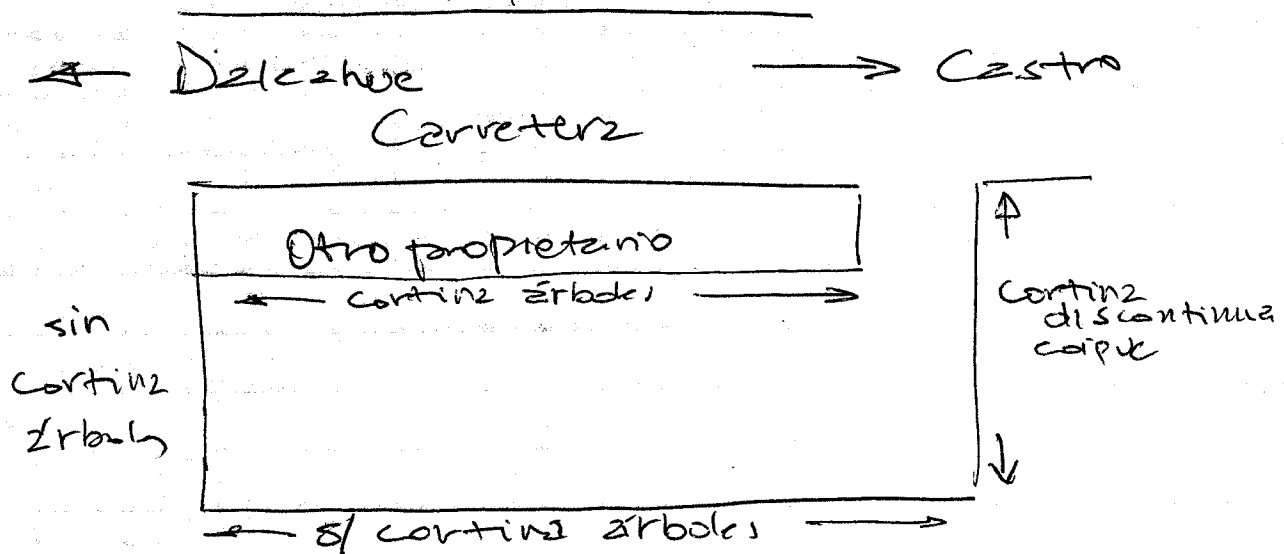 ← Dalcahue → Castro
Carretera
Otro propietario
← cortina árboles →
sin
cortina
árboles
cortina
discontinua
← s/ cortina árboles →